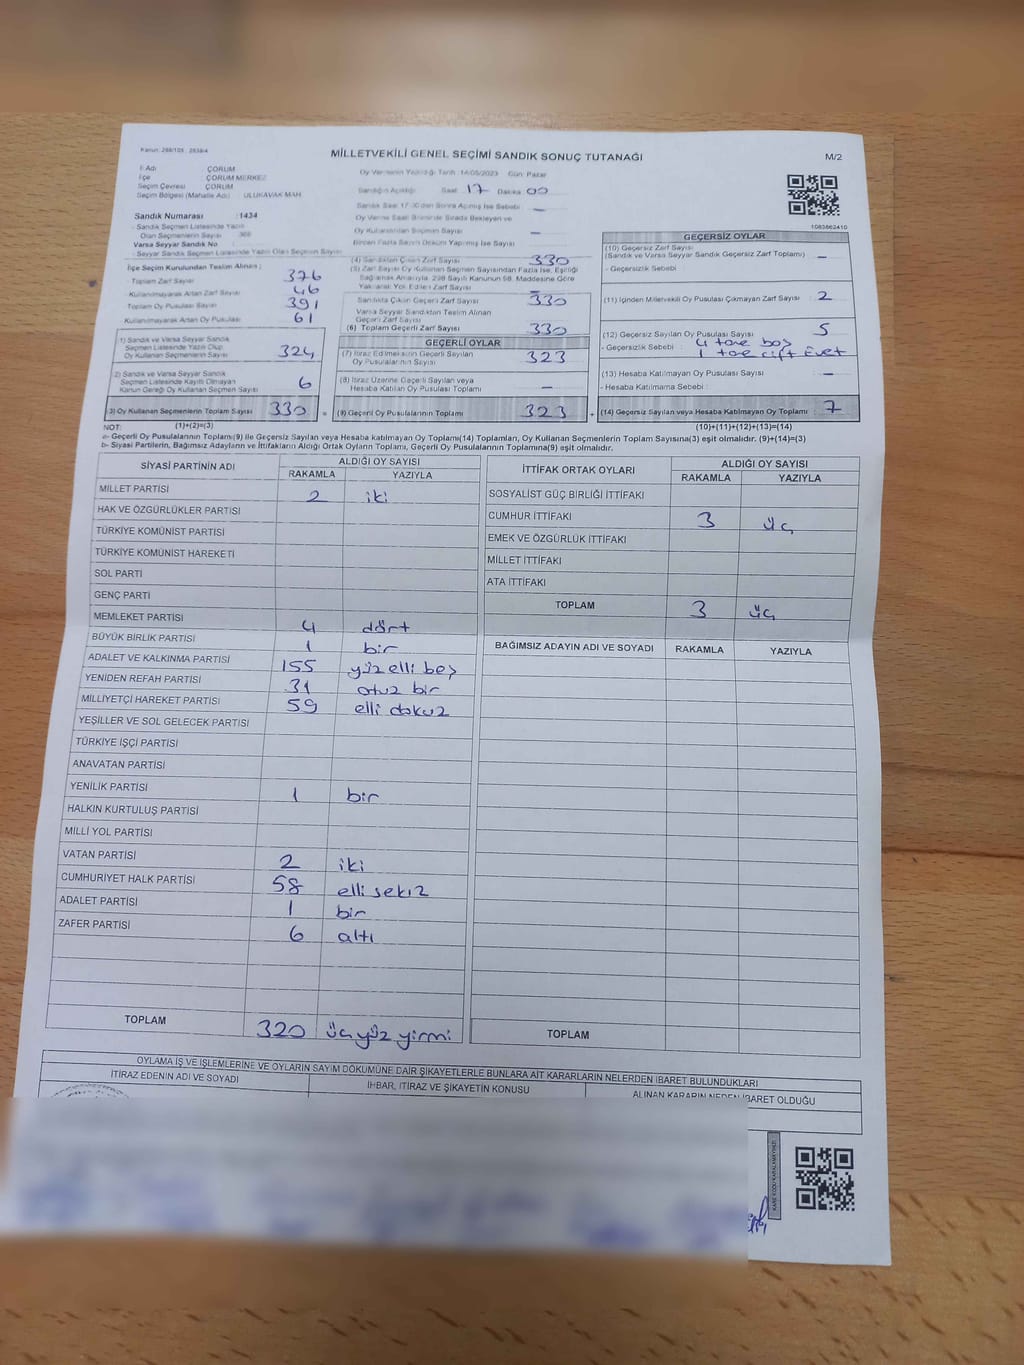 Kanun: 298/105 - 2839/4
MİLLETVEKİLİ GENEL SEÇİMİ SANDIK SONUÇ TUTANAĞI
M/2
İl Adı ÇORUM
İlçe ÇORUM MERKEZ
Seçim Çevresi ÇORUM
Seçim Bölgesi (Mahalle Adı) ULUKAVAK MAH.
Sandık Numarası : 1434
- Sandık Seçmen Listesinde Yazılı
Olan Seçmenlerin Sayısı
Varsa Seyyar Sandık No
- Seyyar Sandık Seçmen Listesinde Yazılı Olan Seçmen Sayısı
İlçe Seçim Kurulundan Teslim Alınan ;
- Toplam Zarf Sayısı 376
- Kullanılmayarak Artan Zarf Sayısı 46
- Toplam Oy Pusulası Sayısı 391
- Kullanılmayarak Artan Oy Pusulası 61
1) Sandık ve Varsa Seyyar Sandık
Seçmen Listesinde Yazılı Olup
Oy Kullanan Seçmenlerin Sayısı 324
2) Sandık ve Varsa Seyyar Sandık
Seçmen Listesinde Kayıtlı Olmayan
Kanun Gereği Oy Kullanan Seçmen Sayısı 6
3) Oy Kullanan Seçmenlerin Toplam Sayısı 330 =
Oy Vermenin Yapıldığı Tarih: 14/05/2023 Gün: Pazar
Sandığın Açıldığı Saat 17 Dakika 00
Sandık Saat 17:00'dan Sonra Açılmış İse Sebebi —
Oy Verme Saati Bitiminde Sırada Bekleyen ve
Oy Kullanan Seçmen Sayısı —
Birden Fazla Sayım Döküm Yapılmış İse Sayısı
(4) Sandıktan Çıkan Zarf Sayısı 330
(5) Zarf Sayısı Oy Kullanan Seçmen Sayısından Fazla İse, Eşitliği
Sağlamak Amacıyla, 298 Sayılı Kanunun 98. Maddesine Göre
Yakılarak Yok Edilen Zarf Sayısı —
Sandıkta Çıkan Geçerli Zarf Sayısı 330
Varsa Seyyar Sandıktan Teslim Alınan
Geçerli Zarf Sayısı
(6) Toplam Geçerli Zarf Sayısı 330
GEÇERLİ OYLAR
(7) İtiraz Edilmeksizin Geçerli Sayılan
Oy Pusulalarının Sayısı 323
(8) İtiraz Üzerine Geçerli Sayılan veya
Hesaba Katılan Oy Pusulası Toplamı —
(9) Geçerli Oy Pusulalarının Toplamı 323 +
1083862410
GEÇERSİZ OYLAR
(10) Geçersiz Zarf Sayısı
(Sandık ve Varsa Seyyar Sandık Geçersiz Zarf Toplamı) —
- Geçersizlik Sebebi
(11) İçinden Milletvekili Oy Pusulası Çıkmayan Zarf Sayısı : 2
(12) Geçersiz Sayılan Oy Pusulası Sayısı 5
- Geçersizlik Sebebi : 4 tane boş
1 tane çift Evet
(13) Hesaba Katılmayan Oy Pusulası Sayısı —
- Hesaba Katılmama Sebebi :
(14) Geçersiz Sayılan veya Hesaba Katılmayan Oy Toplamı 7
NOT: (1)+(2)=(3) (10)+(11)+(12)+(13)=(14)
a- Geçerli Oy Pusulalarının Toplamı(9) ile Geçersiz Sayılan veya Hesaba Katılmayan Oy Toplamı(14) Toplamları, Oy Kullanan Seçmenlerin Toplam Sayısına(3) eşit olmalıdır. (9)+(14)=(3)
b- Siyasi Partilerin, Bağımsız Adayların ve İttifakların Aldığı Ortak Oyların Toplamı, Geçerli Oy Pusulalarının Toplamına(9) eşit olmalıdır.
SİYASİ PARTİNİN ADI ALDIĞI OY SAYISI
RAKAMLA YAZIYLA
MİLLET PARTİSİ 2 iki
HAK VE ÖZGÜRLÜKLER PARTİSİ
TÜRKİYE KOMÜNİST PARTİSİ
TÜRKİYE KOMÜNİST HAREKETİ
SOL PARTİ
GENÇ PARTİ
MEMLEKET PARTİSİ 4 dört
BÜYÜK BİRLİK PARTİSİ 1 bir
ADALET VE KALKINMA PARTİSİ 155 yüz elli beş
YENİDEN REFAH PARTİSİ 31 otuz bir
MİLLİYETÇİ HAREKET PARTİSİ 59 elli dokuz
YEŞİLLER VE SOL GELECEK PARTİSİ
TÜRKİYE İŞÇİ PARTİSİ
ANAVATAN PARTİSİ
YENİLİK PARTİSİ 1 bir
HALKIN KURTULUŞ PARTİSİ
MİLLİ YOL PARTİSİ
VATAN PARTİSİ 2 iki
CUMHURİYET HALK PARTİSİ 58 elli sekiz
ADALET PARTİSİ 1 bir
ZAFER PARTİSİ 6 altı
TOPLAM 320 üç yüz yirmi
İTTİFAK ORTAK OYLARI ALDIĞI OY SAYISI
RAKAMLA YAZIYLA
SOSYALİST GÜÇ BİRLİĞİ İTTİFAKI
CUMHUR İTTİFAKI 3 üç
EMEK VE ÖZGÜRLÜK İTTİFAKI
MİLLET İTTİFAKI
ATA İTTİFAKI
TOPLAM 3 üç
BAĞIMSIZ ADAYIN ADI VE SOYADI RAKAMLA YAZIYLA
TOPLAM
OYLAMA İŞ VE İŞLEMLERİNE VE OYLARIN SAYIM DÖKÜMÜNE DAİR ŞİKAYETLERLE BUNLARA AİT KARARLARIN NELERDEN İBARET BULUNDUKLARI
İTİRAZ EDENİN ADI VE SOYADI İHBAR, İTİRAZ VE ŞİKAYETİN KONUSU ALINAN KARARIN NEDEN İBARET OLDUĞU